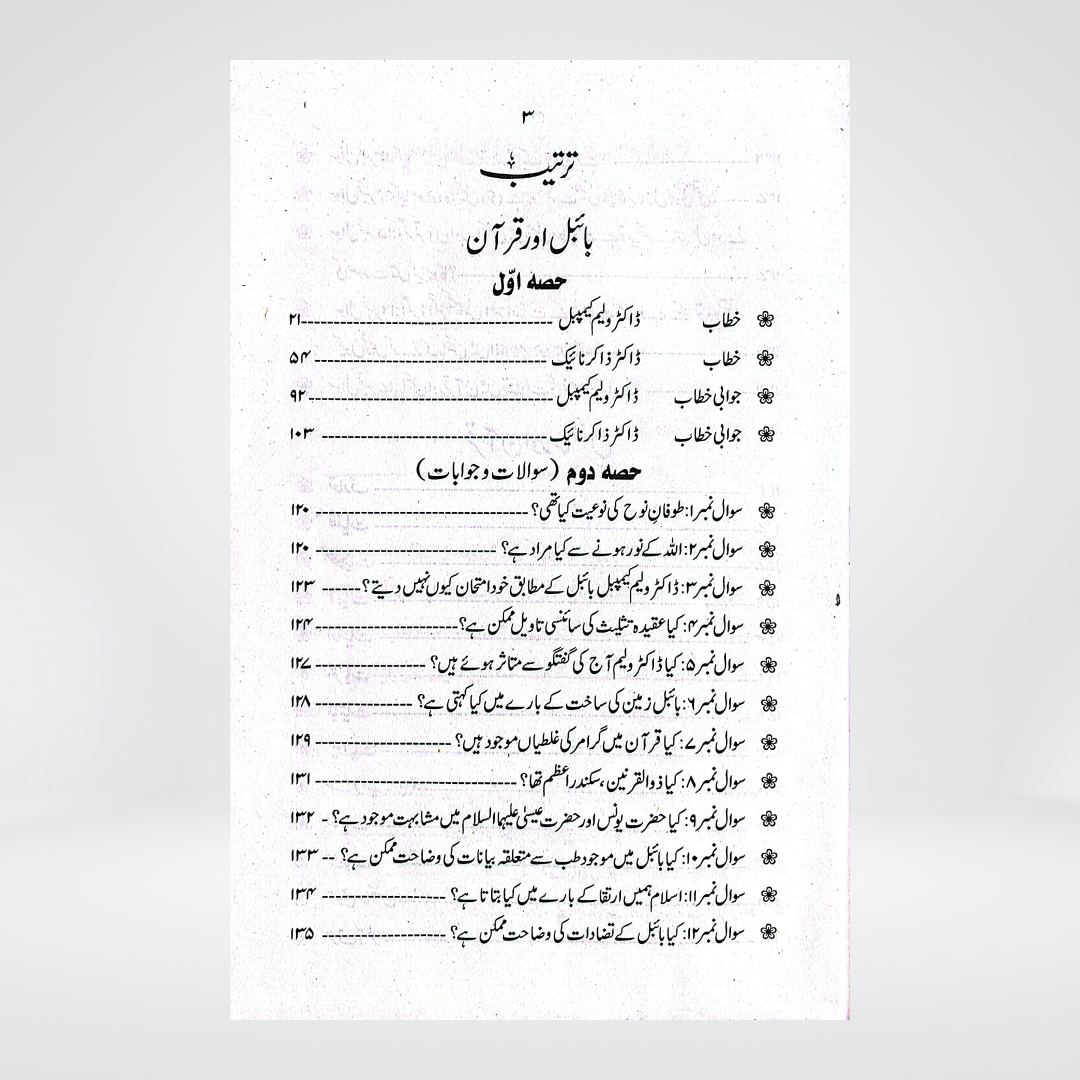 ۳
ترتیب
بائبل اور قرآن
حصہ اوّل
خطاب ڈاکٹر ولیم کیمپبل ۲۱
خطاب ڈاکٹر ذاکر نائیک ۵۴
جوابی خطاب ڈاکٹر ولیم کیمپبل ۹۲
جوابی خطاب ڈاکٹر ذاکر نائیک ۱۰۳
حصہ دوم (سوالات و جوابات)
سوال نمبر۱: طوفانِ نوح کی نوعیت کیا تھی؟ ۱۲۰
سوال نمبر۲: اللہ کے نور ہونے سے کیا مراد ہے؟ ۱۲۰
سوال نمبر۳: ڈاکٹر ولیم کیمپبل بائبل کے مطابق خود امتحان کیوں نہیں دیتے؟ ۱۲۳
سوال نمبر۴: کیا عقیدہ تثلیث کی سائنسی تاویل ممکن ہے؟ ۱۲۴
سوال نمبر۵: کیا ڈاکٹر ولیم آج کی گفتگو سے متاثر ہوئے ہیں؟ ۱۲۷
سوال نمبر۶: بائبل زمین کی ساخت کے بارے میں کیا کہتی ہے؟ ۱۲۸
سوال نمبر۷: کیا قرآن میں گرامر کی غلطیاں موجود ہیں؟ ۱۲۹
سوال نمبر۸: کیا ذوالقرنین، سکندر اعظم تھا؟ ۱۳۱
سوال نمبر۹: کیا حضرت یونس اور حضرت عیسیٰ علیہما السلام میں مشابہت موجود ہے؟ ۱۳۲
سوال نمبر۱۰: کیا بائبل میں موجود طب سے متعلقہ بیانات کی وضاحت ممکن ہے؟ ۱۳۳
سوال نمبر۱۱: اسلام ہمیں ارتقا کے بارے میں کیا بتاتا ہے؟ ۱۳۴
سوال نمبر۱۲: کیا بائبل کے تضادات کی وضاحت ممکن ہے؟ ۱۳۵